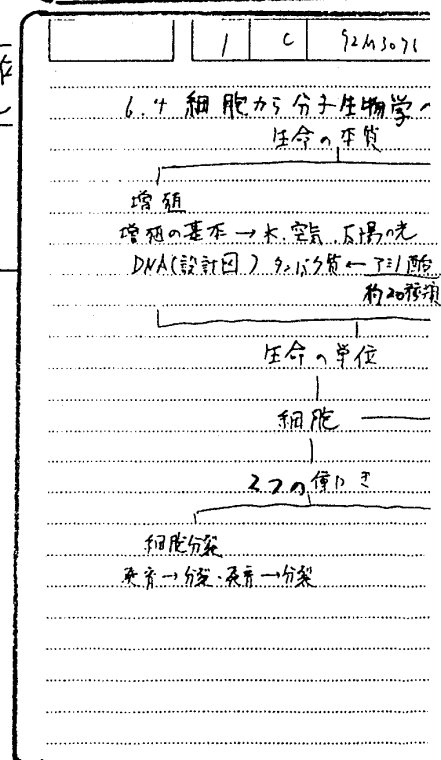 1 C 92M3071
6.4 細胞から分子生物学へ
生命の本質
増殖
増殖の基本→水.空気.太陽の光
DNA(設計図) タンパク質←アミノ酸
約20種類
生命の単位
細胞
2つの働き
細胞分裂
発育→分裂.発育→分裂